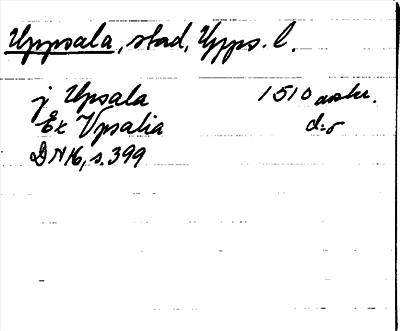 Uppsala, stad, Upps. l.
j Upsala 1510 avskr.
Ex Vpsalia d:o
DN 16, s. 399